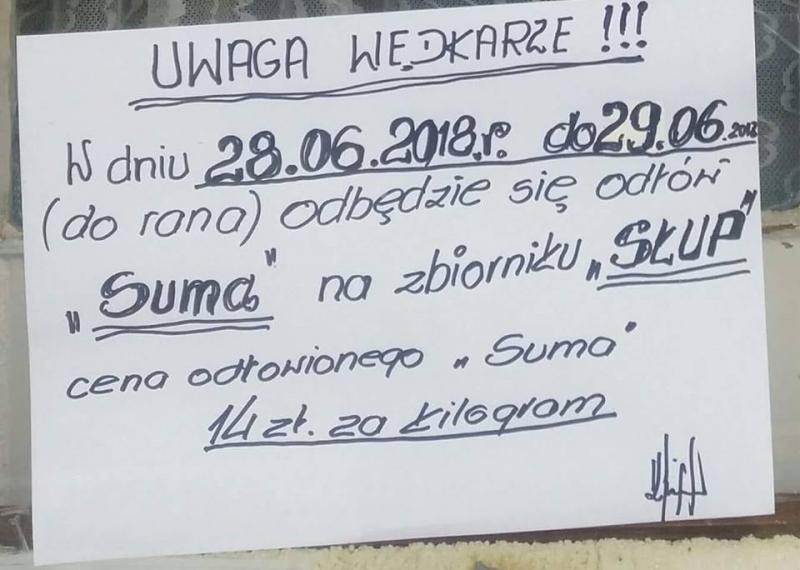 UWAGA WĘDKARZE !!!
W dniu 28.06.2018.r. do 29.06.2018
(do rana) odbędzie się odłów
„Suma" na zbiorniku „SŁUP"
cena odłowionego „Suma"
14 zł. za kilogram